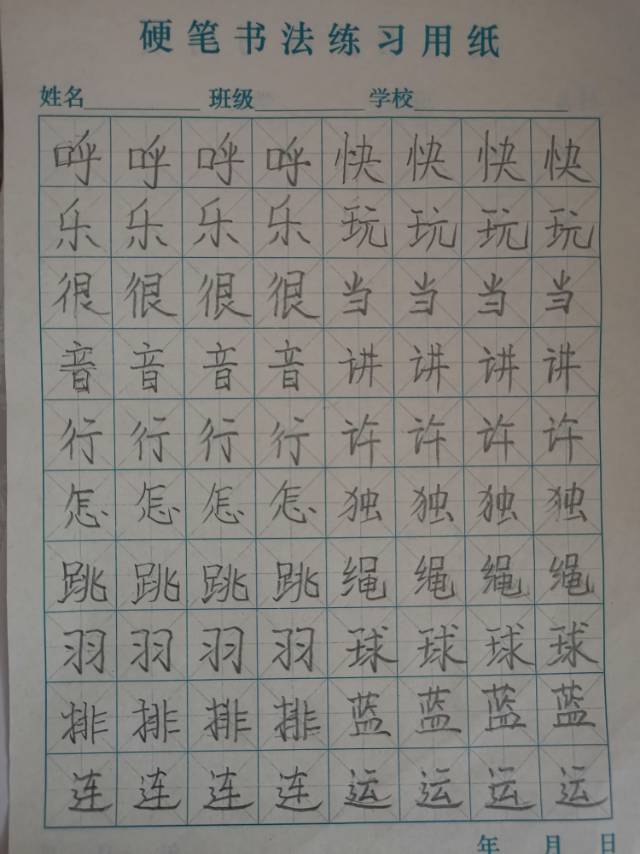 硬笔书法练习用纸
姓名 班级 学校
呼呼呼呼快快快快
乐乐乐乐玩玩玩玩
很很很很当当当当
音音音音讲讲讲讲
行行行行许许许许
怎怎怎怎独独独独
跳跳跳跳绳绳绳绳
羽羽羽羽球球球球
排排排排蓝蓝蓝蓝
连连连连运运运运
年 月 日